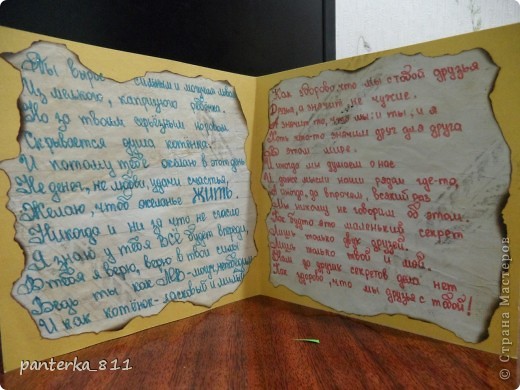 Ты вырос сильным и могучим
Из мелкого, капризного ребёнка.
Но за твоим серьёзным нравом
Скрывается душа котёнка.
И потому тебе желаю в этот день
Не денег, не любви, удачи счастья,
Желаю, чтоб желанье ЖИТЬ.
Никогда и ни за что не гасло
Я знаю у тебя всё будет впереди,
В тебя я верю, верю в твои силы
Ведь ты как
И как котёнок-ласковый и милый
Как здорово, что мы с тобой друзья
Друзья, а значит, не чужие.
А значит то, что мы: и ты, и я
Хоть что-то значим друг для друга
В этом мире.
Иногда мы думаем о нас
И даже мысли наши рядом где-то,
А иногда, да впрочем, всякий раз
Мы никому не говорим об этом.
Как будто это маленький секрет
Лишь только двух друзей.
Лишь только твой и мой.
Нам да других секретов дела нет
Как здорово, что мы друзья с тобой!
panterka_811
© Страна Мастеров